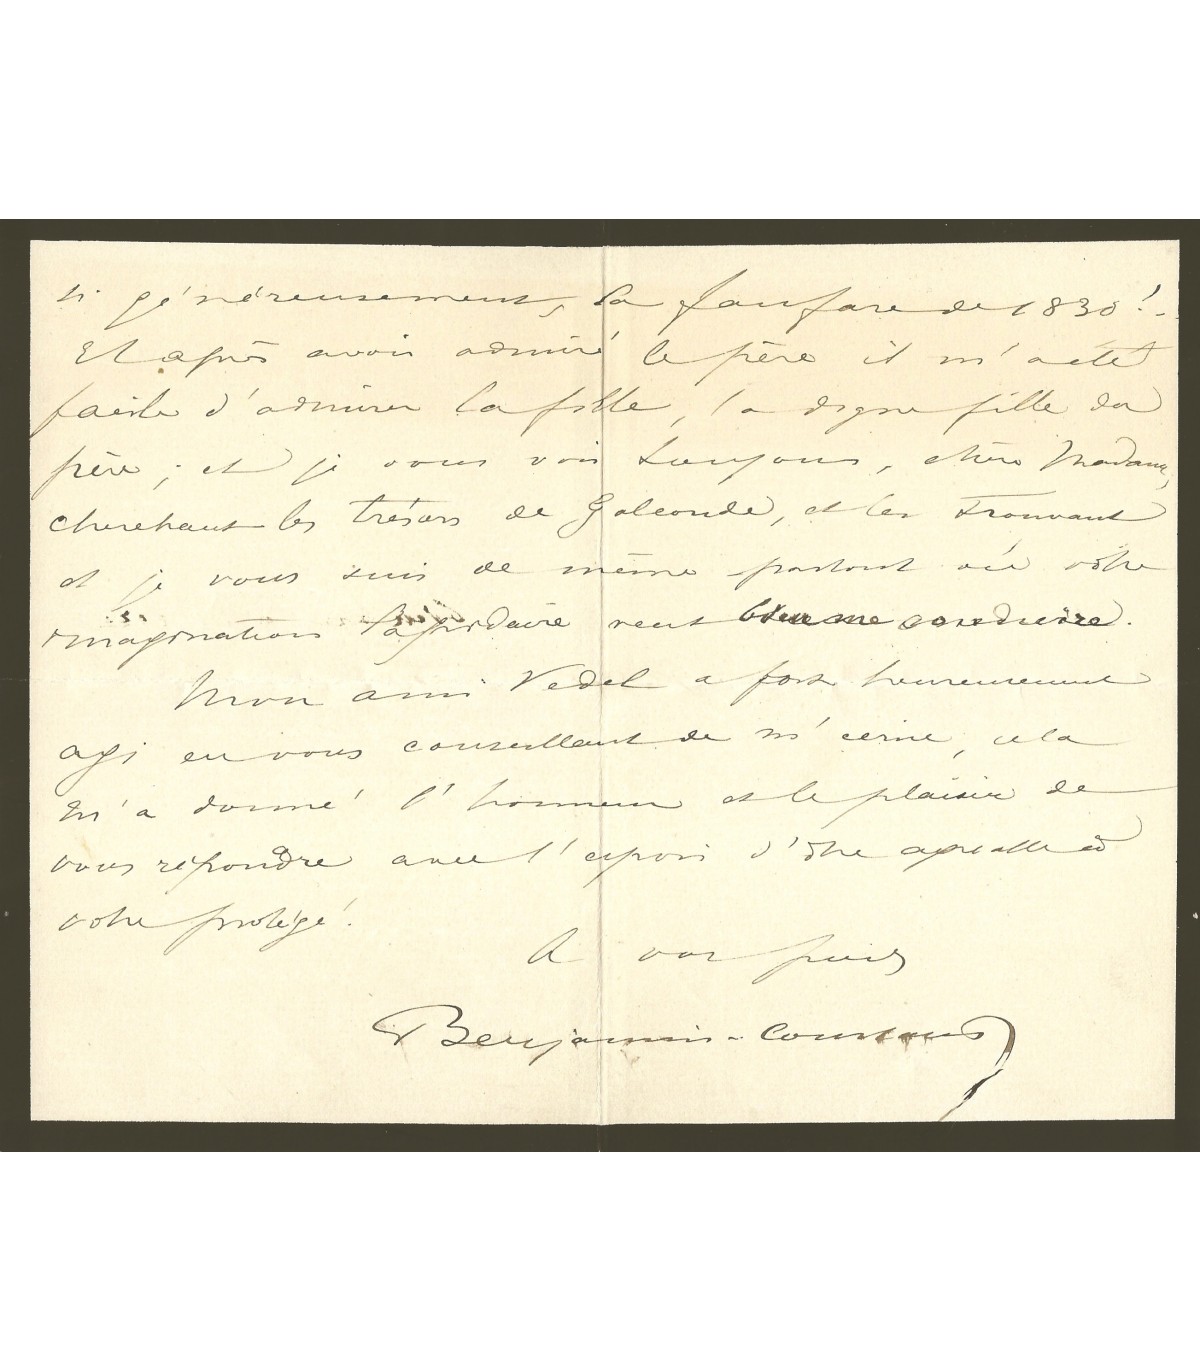 si généreusement, la fanfare de 1830 ! -
Et après avoir admiré le père il m'a été
facile d'admirer la fille, la digne fille du
père ; et je vous vois toujours, chère Madame,
cherchant les trésors de Golconde, et les trouvant
et je vous suis de même partout où votre
imagination lapidaire veut bien me conduire.
Mon ami Vedel a fort heureusement
agi en vous conseillant de m'écrire, cela
m'a donné l'honneur et le plaisir de
vous répondre avec l'espoir d'être agréable à
votre protégé.
A vos pieds
Benjamin-Constant